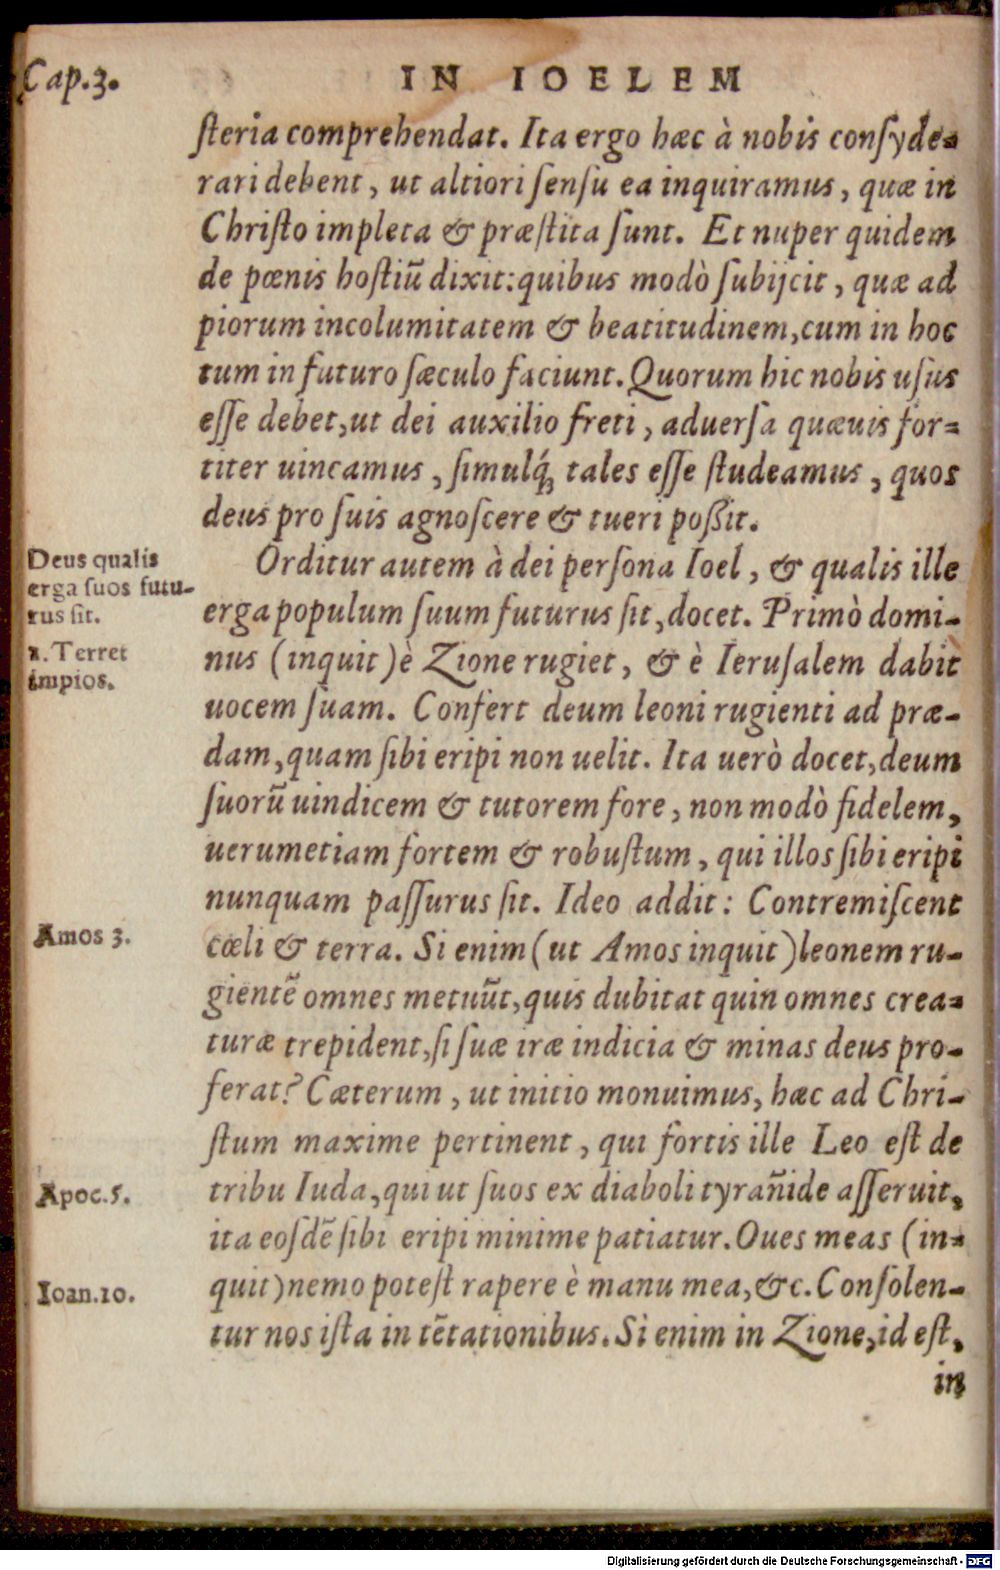 Cap.3.
IN IOELEM
ſteria comprehendat. Ita ergo hæc à nobis conſyde-
rari debent, ut altiori ſenſu ea inquiramus, quæ in
Chriſto impleta & præſtita ſunt. Et nuper quidem
de pœnis hoſtiū dixit: quibus modò ſubijcit, quæ ad
piorum incolumitatem & beatitudinem, cum in hoc
tum in futuro ſæculo faciunt. Quorum hic nobis uſus
eſſe debet, ut dei auxilio freti, aduerſa quæuis for-
titer uincamus, ſimulq́; tales eſſe ſtudeamus, quos
deus pro ſuis agnoſcere & tueri poßit.
Deus qualis
erga ſuos futu-
rus ſit.
1. Terret
impios.
Orditur autem à dei perſona Ioel, & qualis ille
erga populum ſuum futurus ſit, docet. Primò domi-
nus (inquit) è Zione rugiet, & è Ieruſalem dabit
uocem ſuam. Confert deum leoni rugienti ad præ-
dam, quam ſibi eripi non uelit. Ita uerò docet, deum
ſuorū uindicem & tutorem fore, non modò fidelem,
uerumetiam fortem & robuſtum, qui illos ſibi eripi
nunquam paſſurus ſit. Ideo addit: Contremiſcent
Amos 3.
cœli & terra. Si enim (ut Amos inquit) leonem ru-
gientē omnes metuūt, quis dubitat quin omnes crea-
turæ trepident, ſi ſuæ iræ indicia & minas deus pro-
ferat? Cæterum, ut initio monuimus, hæc ad Chri-
ſtum maxime pertinent, qui fortis ille Leo eſt de
Apoc.5.
tribu Iuda, qui ut ſuos ex diaboli tyran̄ide aſſeruit,
ita eoſdē ſibi eripi minime patiatur. Oues meas (in-
Ioan.10.
quit) nemo poteſt rapere è manu mea, &c. Conſolen-
tur nos iſta in tētationibus. Si enim in Zione, id eſt,
in
Digitalisierung gefördert durch die Deutsche Forschungsgemeinschaft - DFG